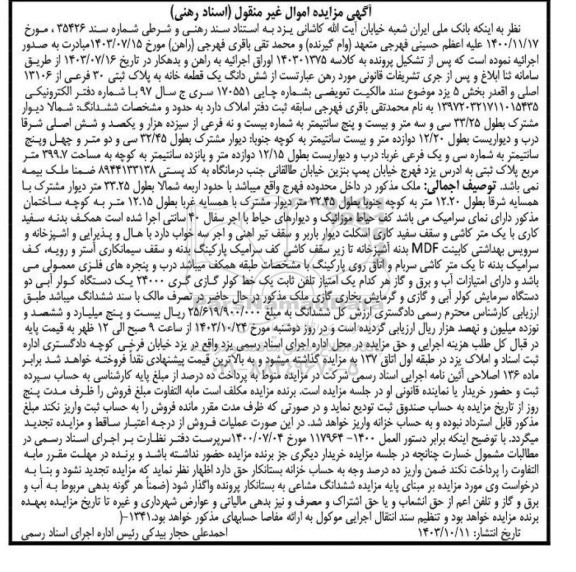 آگهی مزایده اموال غیر منقول (اسناد رهنی)
نظر به اینکه بانک ملی ایران شعبه خیابان آیت الله کاشانی یزد به استناد سند رهنی و شرطی شماره سند ۳۵۴۲۶ ، مورخ
۱۴۰۰/۱۱/۱۷ علیه اعظم حسینی فهرجی متعهد (وام گیرنده) و محمد تقی باقری فهرجی (راهن) مورخ ۱۴۰۳/۰۷/۱۵مبادرت به صدور
اجرائیه نموده است که پس از تشکیل پرونده به کلاسه ۱۴۰۳۰۱۳۷۵ اوراق اجرائیه به راهن و بدهکار در تاریخ ۱۴۰۳/۰۷/۱۶ از طریق
سامانه ثنا ابلاغ و پس از جری تشریفات قانونی مورد رهن عبارتست از شش دانگ یک قطعه خانه به پلاک ثبتی ۳۰ فرعی از ۱۳۱۰۶
اصلی و اقعدر بخش ۵ یزد موضوع سند مالکیت تعویضی بشماره چاپی ۱۷۰۵۵۱ سری ج سال ۹۷ با شماره دفتر الکترونیکی
۱۳۹۷۲۰۳۲۱۷۱۱۰۱۵۴۳۵ به نام محمدتقی باقری فهرجی سابقه ثبت دفتر املاک دارد به حدود و مشخصات ششدانگ: شمالا دیوار
مشترک بطول ۳۳/۲۵ سی و سه متر و بیست و پنج سانتیمتر به شماره بیست و نه فرعی از سیزده هزار و یکصد و شش اصلی شرقا
درب و دیواریست بطول ۱۲/۲۰ دوازده متر و بیست سانتیمتر به کوچه جنوبا: دیوار مشترک بطول ۳۲/۴۵ سی و دو متر و چهل وپنج
سانتیمتر به شماره سی و یک فرعی غربا: درب و دیواریست بطول ۱۲/۱۵ دوازده متر و پانزده سانتیمتر به کوچه به مساحت ۳۹۹.۷ متر
مربع پلاک ثبتی به ادرس یزد فهرج خیابان پمپ بنزین خیابان طالقانی جنب درمانگاه به کد پستی ۸۹۴۴۱۳۳۱۳۸ ضمنا ملک بیمه
نمی باشد. توصیف اجمالی: ملک مذکور در داخل محدوده فهرج واقع میباشد با حدود اربعه شمالا بطول ۳۳.۲۵ متر دیوار مشترک با
همسایه شرقا بطول ۱۲.۲۰ متر به کوچه جنوبا بطول ۳۲.۴۵ متر دیوار مشترک با همسایه غربا بطول ۱۲.۱۵ متر به کوچه ساختمان
مذکور دارای نمای سرامیک می باشد کف حیاط موزائیک و دیوارهای حیاط با اجر سفال ۴۰ سانتی اجرا شده است همکف بدنه سفید
کاری با یک متر کاشی و سقف سفید کاری اسکلت دیوار باربر و سقف تیر اهنی و اجر سه خواب دارد با هال و پذیرایی و اشپزخانه و
سرویس بهداشتی کابینت MDF بدنه اشپزخانه تا زیر سقف کاشی کف سرامیک پارکینگ بدنه و سقف سیمانکاری آستر و رویه، کف
سرامیک بدنه تا یک متر کاشی سربام و اتاق روی پارکینگ با مشخصات طبقه همکف میباشد درب و پنجره های فلزی معمولی می
باشد و دارای امتیازات آب و برق و گاز هر کدام یک امتیاز تلفن ثابت یک خط کولر گازی گری ۲۴۰۰۰ یک دستگاه کولر آبی دو
دستگاه سرمایش کولر آبی و گازی و گرمایش بخاری گازی ملک مذکور در حال حاضر در تصرف مالک با سند ششدانگ میباشد طبق
ارزیابی کارشناس محترم رسمی دادگستری ارزش کل ششدانگ به مبلغ ۲۵/۶۱۹/۹۰۰/۰۰۰ ریال بیست و پنج میلیارد و ششصد و
نوزده میلیون و نهصد هزار ریال ارزیابی گردیده است و در روز دوشنبه مورخ ۱۴۰۳/۱۰/۲۴ از ساعت ۹ صبح الی ۱۲ ظهر به قیمت پایه
در قبال کل طلب هزینه اجرایی و حق مزایده در محل اداره اجرای اسناد رسمی یزد واقع در یزد خیابان فرخی کوچه دادگستری اداره
ثبت اسناد و املاک یزد در طبقه اول اتاق ۱۳۷ به مزایده گذاشته میشود و به بالاترین قیمت پیشنهادی نقداً فروخته خواهد شد برابر
ماده ۱۳۶ اصلاحی آئین نامه اجرایی اسناد رسمی شرکت در مزایده منوط به پرداخت ده درصد از مبلغ پایه کارشناسی به حساب سپرده
ثبت و حضور خریدار یا نماینده قانونی او در جلسه مزایده است. برنده مزایده مکلف است مابه التفاوت مبلغ فروش را ظرف مدت پنج
روز از تاریخ مزایده به حساب صندوق ثبت تودیع نماید و در صورتی که ظرف مدت مقرر مانده فروش را به حساب ثبت واریز نکند مبلغ
مذکور قابل استرداد نبوده و به حساب خزانه واریز خواهد شد. در این صورت عملیات فروش از درجه اعتبار ساقط و مزایده تجدید
میگردد. با توضیح اینکه برابر دستور العمل ۱۴۰۰- ۱۱۷۹۶۴ مورخ ۱۴۰۰/۰۷/۰۴سرپرست دفتر نظارت بر اجرای اسناد رسمی در
مطالبات مشمول خسارت چنانچه در جلسه مزایده خریدار دیگری جز برنده مزایده حضور نداشته باشد و برنده در مهلت مقرر مابه
التفاوت را پرداخت نکند ضمن واریز ده درصد وجه به حساب خزانه بستانکار حق دارد اظهار نظر نماید که مزایده تجدید نشود و بنا به
درخواست وی مورد مزایده بر مبنای پایه مزایده ششدانگ مشاعی به بستانکار برنده واگذار شود (ضمناً هر گونه بدهی مربوط به آب و
برق و گاز و تلفن اعم از حق انشعاب و یا حق اشتراک و مصرف و نیز بدهی مالیاتی و عوارض شهرداری و غیره تا تاریخ مزایده بعهده
برنده مزایده خواهد بود و تنظیم سند انتقال اجرایی موکول به ارائه مفاصا حسابهای مذکور خواهد بود.۱۳۴۱-(
تاریخ انتشار: ۱۴۰۳/۱۰/۱۱ احمدعلی حجار بیدکی رئیس اداره اجرای اسناد رسمی